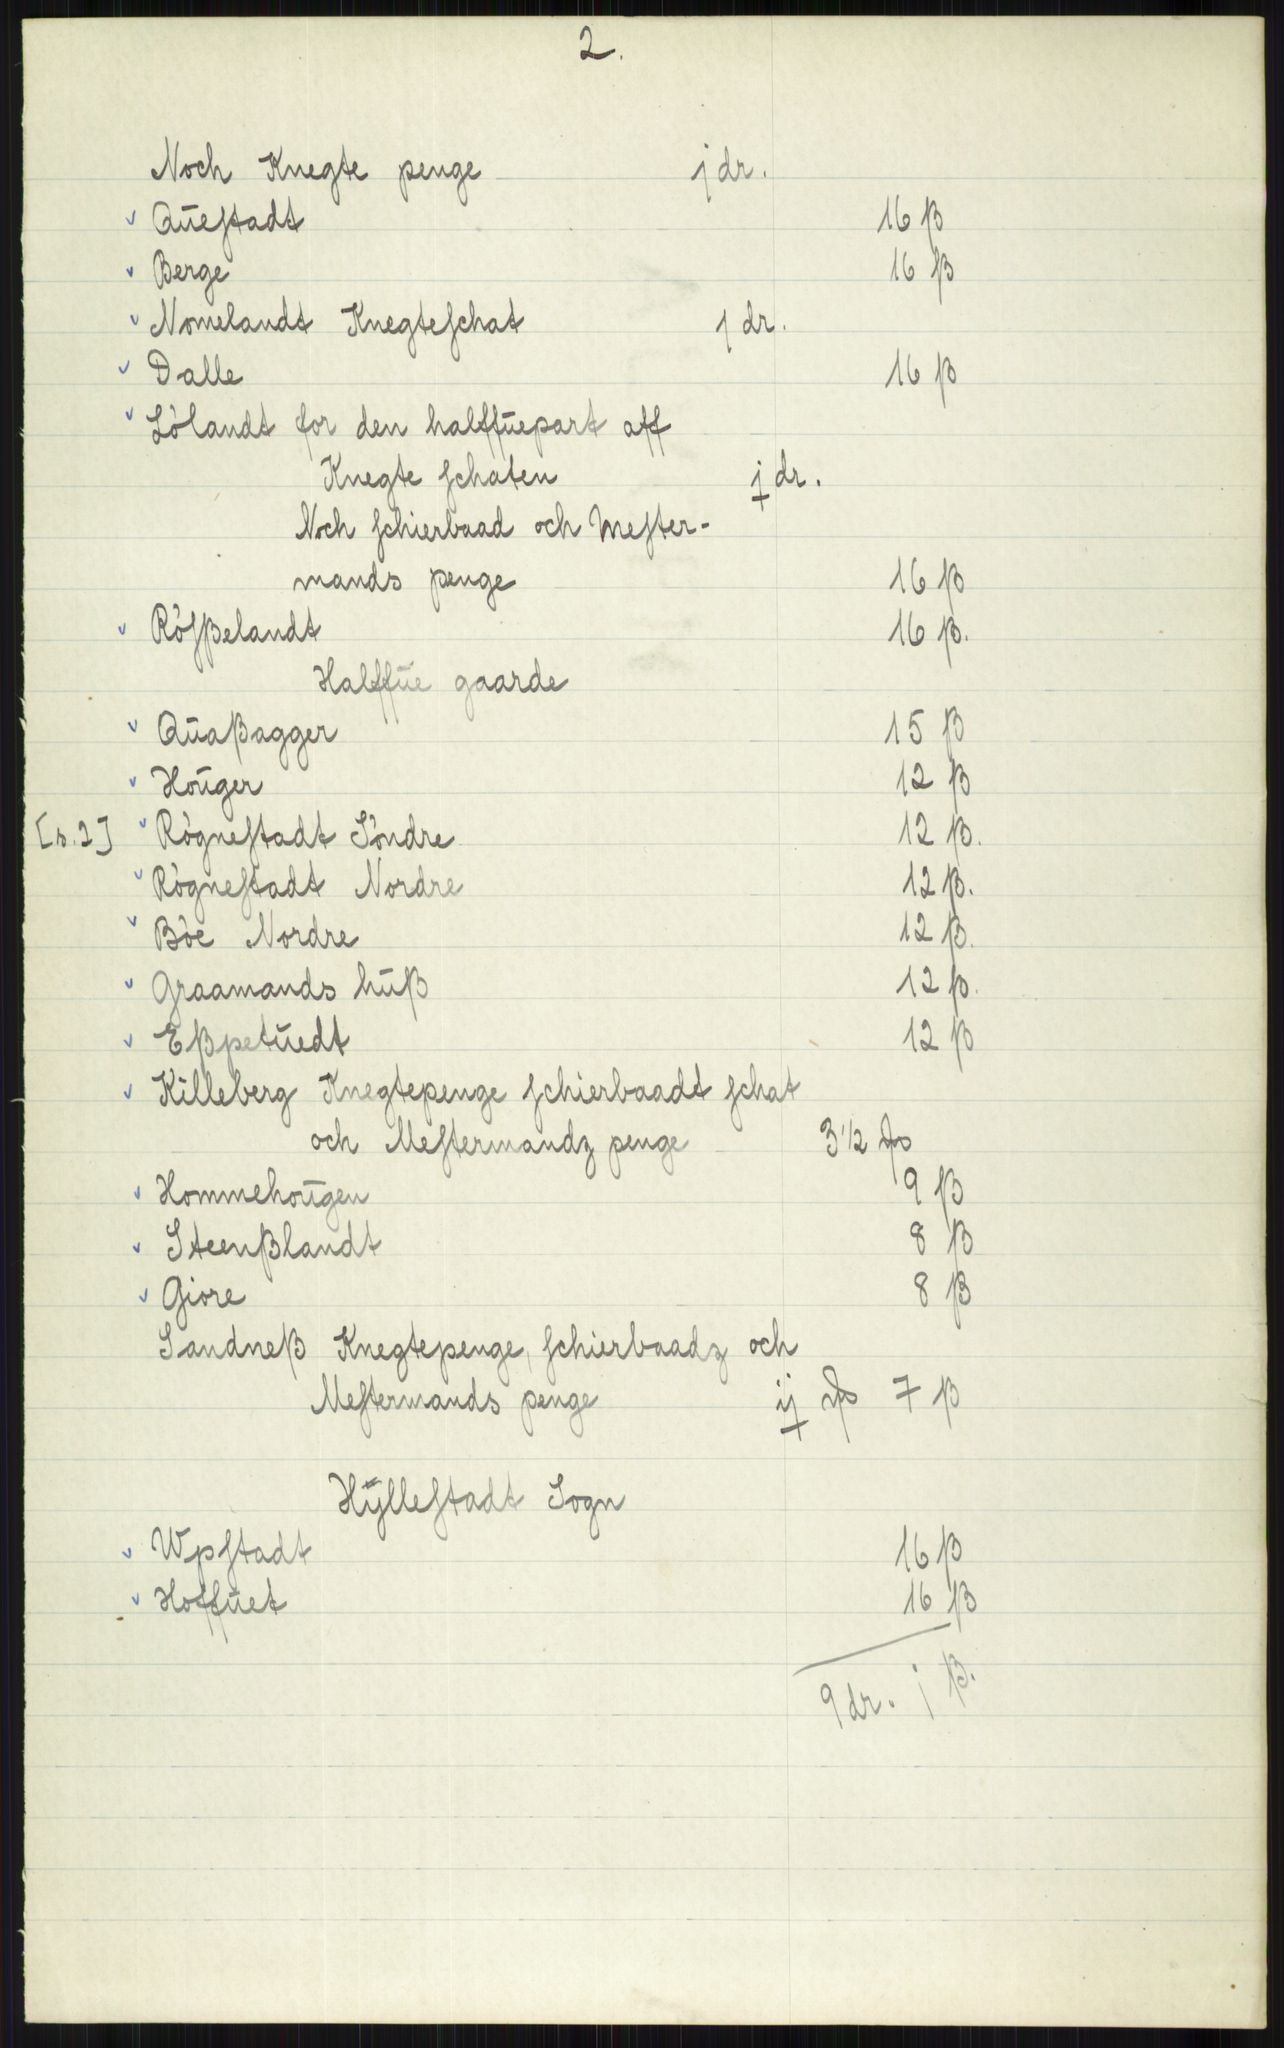 2.
Noch Knegte penge j dr.
v Qūestadt 16 β
v Berge 16 β
v Nomelandt Knegteschat j dr.
v Dalle 16 β
v Lòlandt for den halffūepart aff
Knegte schaten j dr.
Noch schierbaad och Mester-
mands penge 16 β
v Ròsβelandt 16 β.
Halffūe gaarde
v Qūaβagger 15 β
v Hoūger 12 β
[s. 2] v Rògnestadt Sòndre 12 β.
v Rògnestadt Nordre 12 β.
v Bòe Nordre 12 β.
v Graamands hūβ 12 β.
v Eβpetūedt 12 β
v Killeberg Knegtepenge schierbaadt schat
och Mestermandz penge 3 1/2
v Hommehoūgen 9 β
v Steenβlandt 8 β
v Giore 8 β
Sandneβ Knegtepenge, schierbaadz och
Mestermands penge ij 7 β
Hÿllestadt Sogn
v Wpstadt 16 β
v Hoffūet 16 β
9 dr. j β.